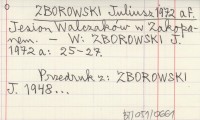 ZBOROWSKI Juliusz 1972 af.
Jesion Walczaków w Zakopa-
nem. - W: ZBOROWSKI J.
1972 a: 25-27.
Przedruk z: ZBOROWSKI
J. 1948...